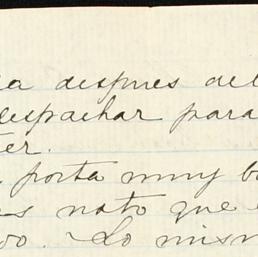 despues del
despachar para
ter.
porta muy b
nato que
do. Lo mism